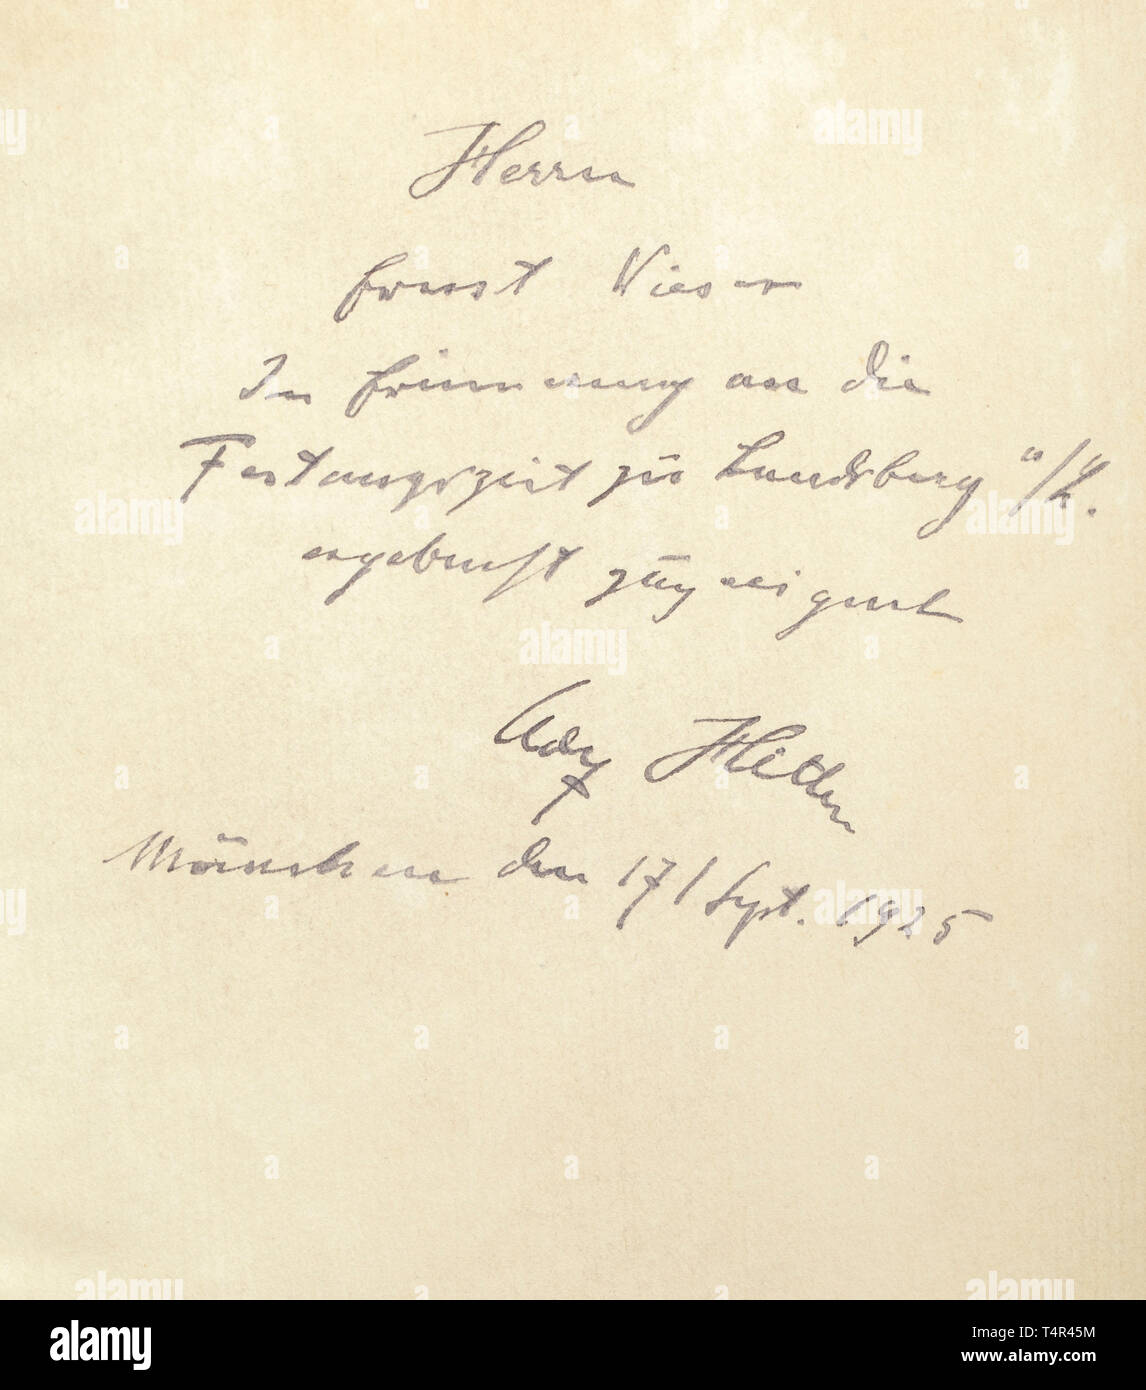 Herrn
Ernst Wieser
In Erinnerung an die
Festungszeit zu Landsberg a/L.
ergebenst zugeeignet
Adolf Hitler
München den 17/ Sept. 1925
alamy
Image ID: T4R45M
www.alamy.com